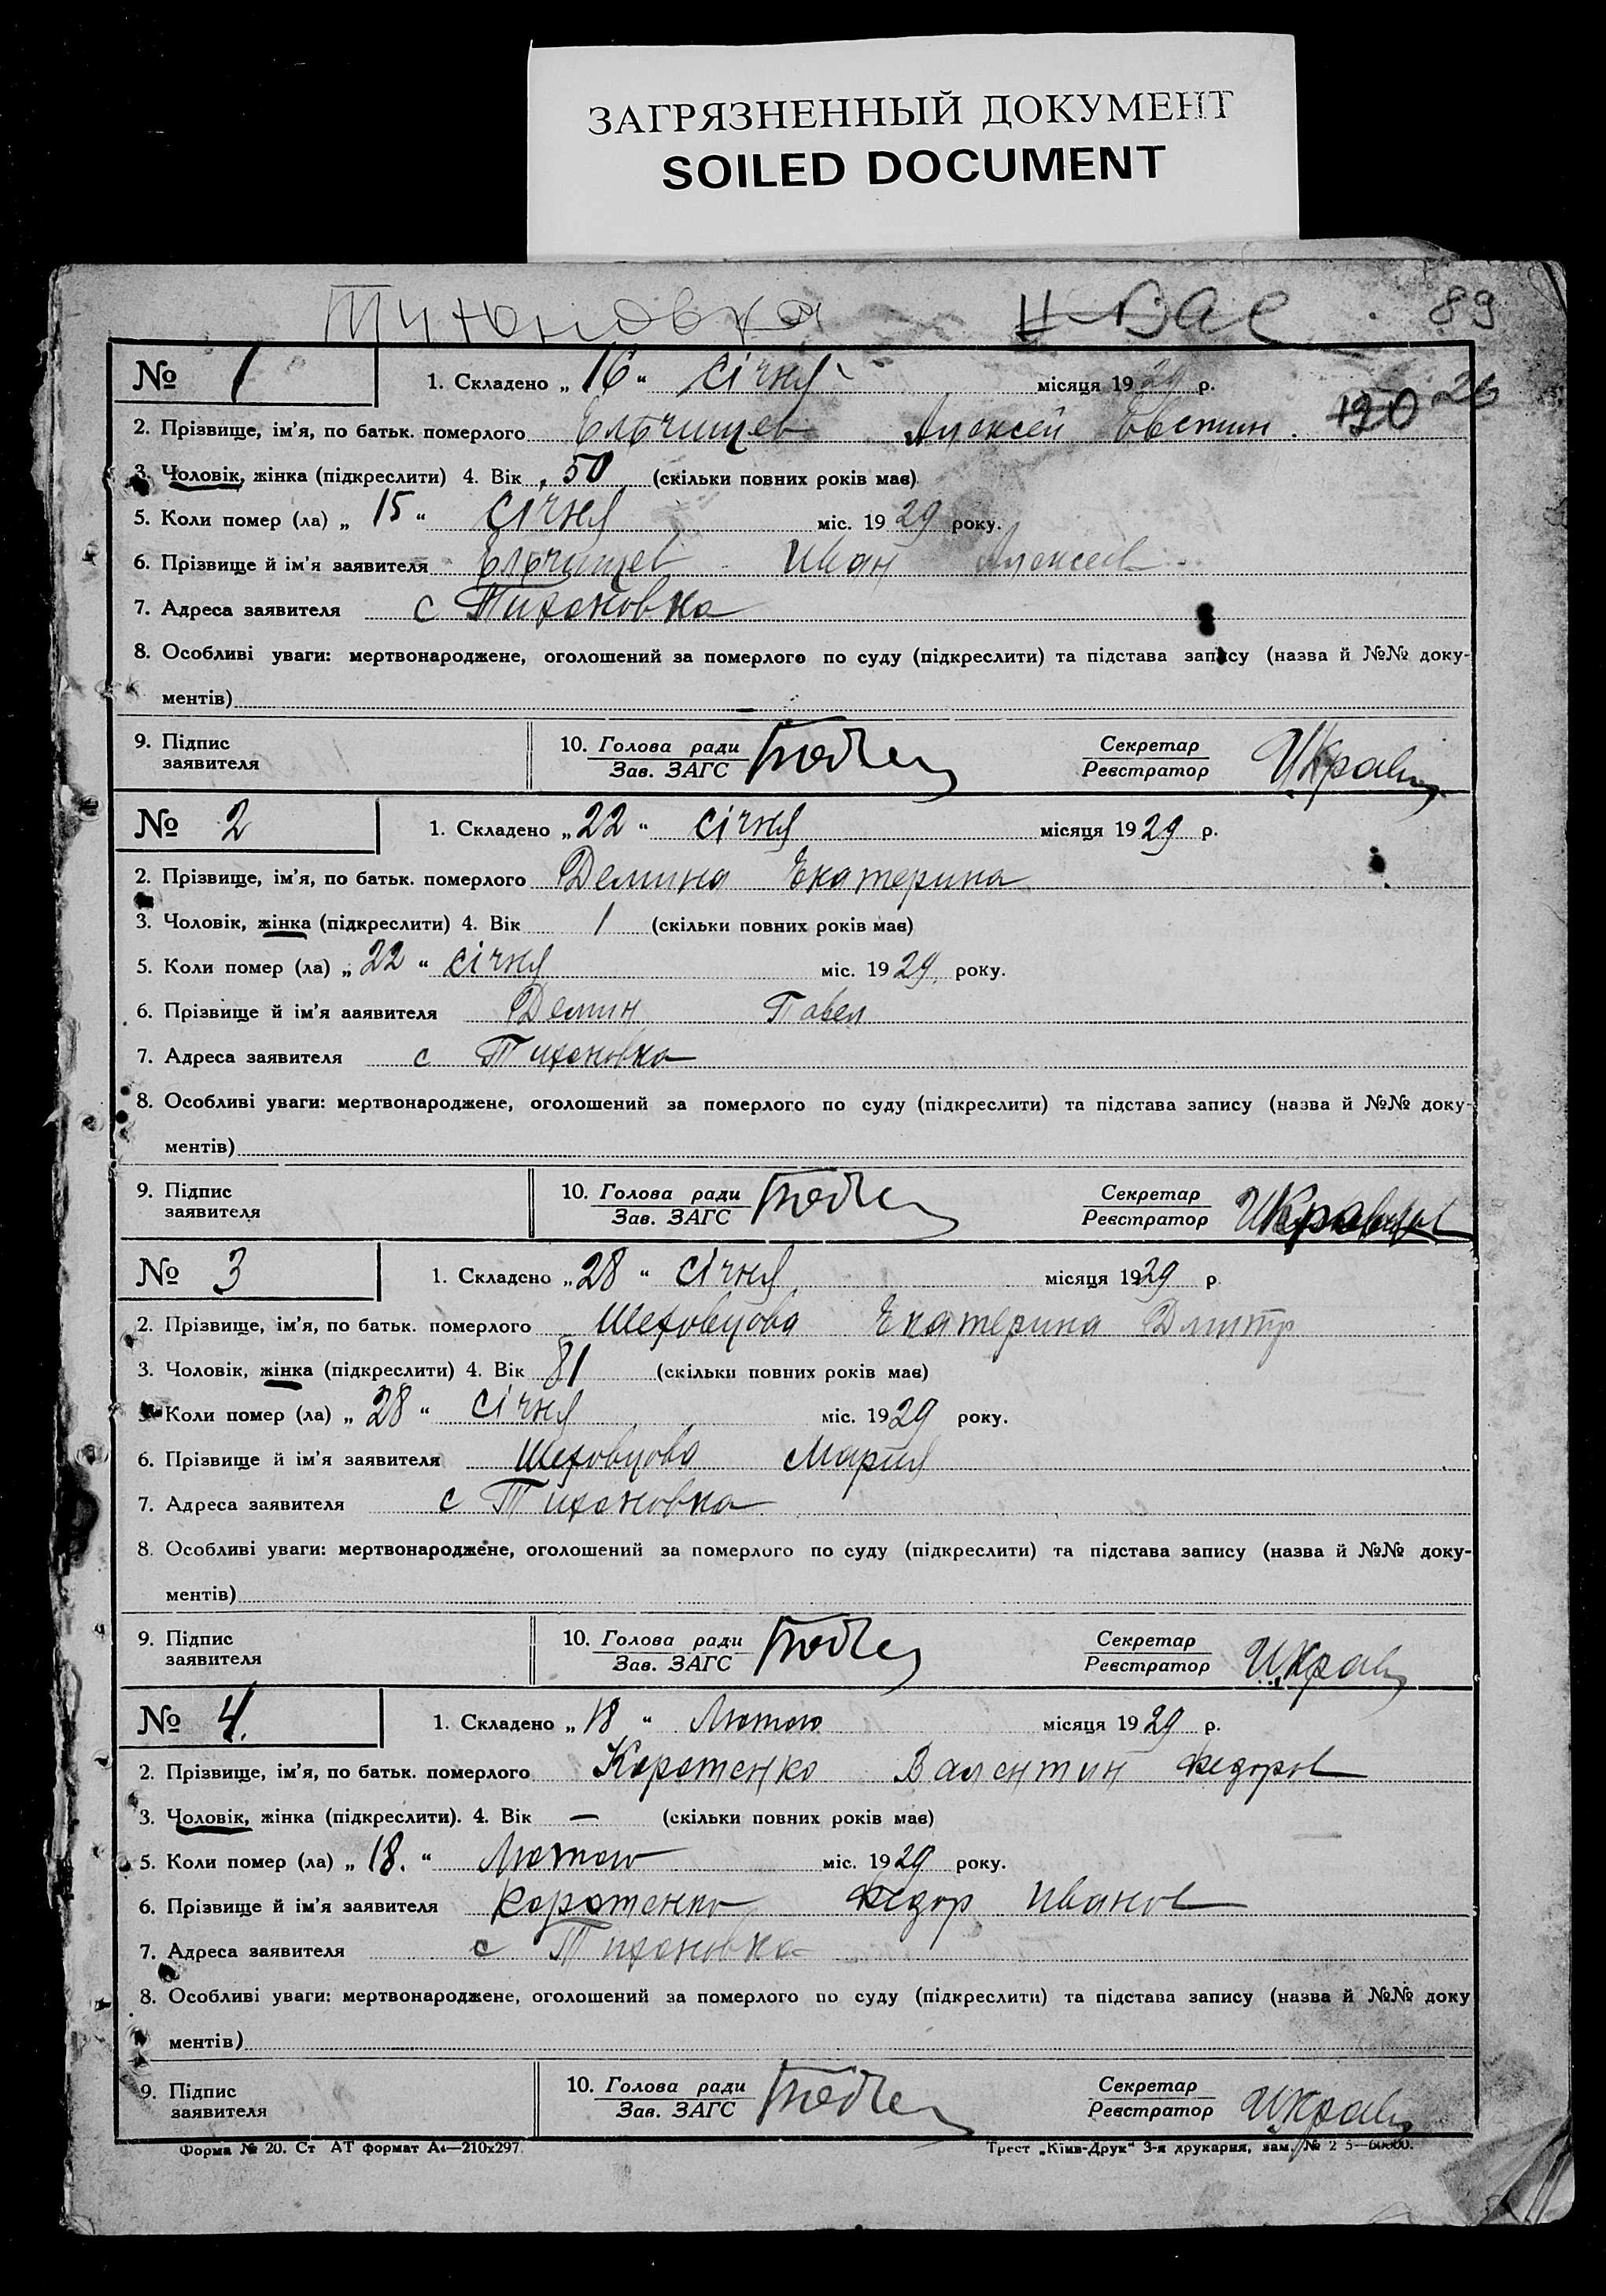 ЗАГРЯЗНЕННЫЙ ДОКУМЕНТ
SOILED DOCUMENT
Тихоновка 89
№ 1 1. Складено „16“ січня місяця 1929 р.
190 26
2. Прізвище, ім'я, по батьк. померлого Ельчищев Алексей Евстин.
3. Чоловік, жінка (підкреслити) 4. Вік 50 (скільки повних років має)
5. Коли помер (ла) „15“ січня міс. 1929 року.
6. Прізвище й ім'я заявителя Ельчищев Иван Алексеев
7. Адреса заявителя с Тихоновка
8. Особливі уваги: мертвонароджене, оголошений за померлого по суду (підкреслити) та підстава запису (назва й №№ доку-
ментів) —
9. Підпис заявителя 10. Голова ради Зав. ЗАГС Секретар Реєстратор
№ 2 1. Складено „22“ січня місяця 1929 р.
2. Прізвище, ім'я, по батьк. померлого Демина Екатерина
3. Чоловік, жінка (підкреслити) 4. Вік 1 (скільки повних років має)
5. Коли помер (ла) „22“ січня міс. 1929 року.
6. Прізвище й ім'я заявителя Демин Павел
7. Адреса заявителя с Тихоновка
8. Особливі уваги: мертвонароджене, оголошений за померлого по суду (підкреслити) та підстава запису (назва й №№ доку-
ментів)
9. Підпис заявителя 10. Голова ради Зав. ЗАГС Секретар Реєстратор
№ 3 1. Складено „28“ січня місяця 1929 р
2. Прізвище, ім'я, по батьк. померлого Шеховцова Екатерина Дмитр
3. Чоловік, жінка (підкреслити) 4. Вік 81 (скільки повних років має)
5. Коли помер (ла) „28“ січня міс. 1929 року.
6. Прізвище й ім'я заявителя Шеховцова Мария
7. Адреса заявителя с Тихоновка
8. Особливі уваги: мертвонароджене, оголошений за померлого по суду (підкреслити) та підстава запису (назва й №№ доку-
ментів)
9. Підпис заявителя 10. Голова ради Зав. ЗАГС Секретар Реєстратор
№ 4. 1. Складено „18“ Лютого місяця 1929 р.
2. Прізвище, ім'я, по батьк. померлого Коротенко Валентин Федоров
3. Чоловік, жінка (підкреслити). 4. Вік — (скільки повних років має)
5. Коли помер (ла) „18.“ Лютого міс. 1929 року.
6. Прізвище й ім'я заявителя Коротенко Федор Иванов
7. Адреса заявителя с Тихоновка
8. Особливі уваги: мертвонароджене, оголошений за померлого по суду (підкреслити) та підстава запису (назва й №№ доку
ментів)
9. Підпис заявителя 10. Голова ради Зав. ЗАГС Секретар Реєстратор
Форма № 20. Ст АТ формат А4—210х297 Трест „Київ-Друк“ 3-я друкарня, зам. № 2 5—60000.